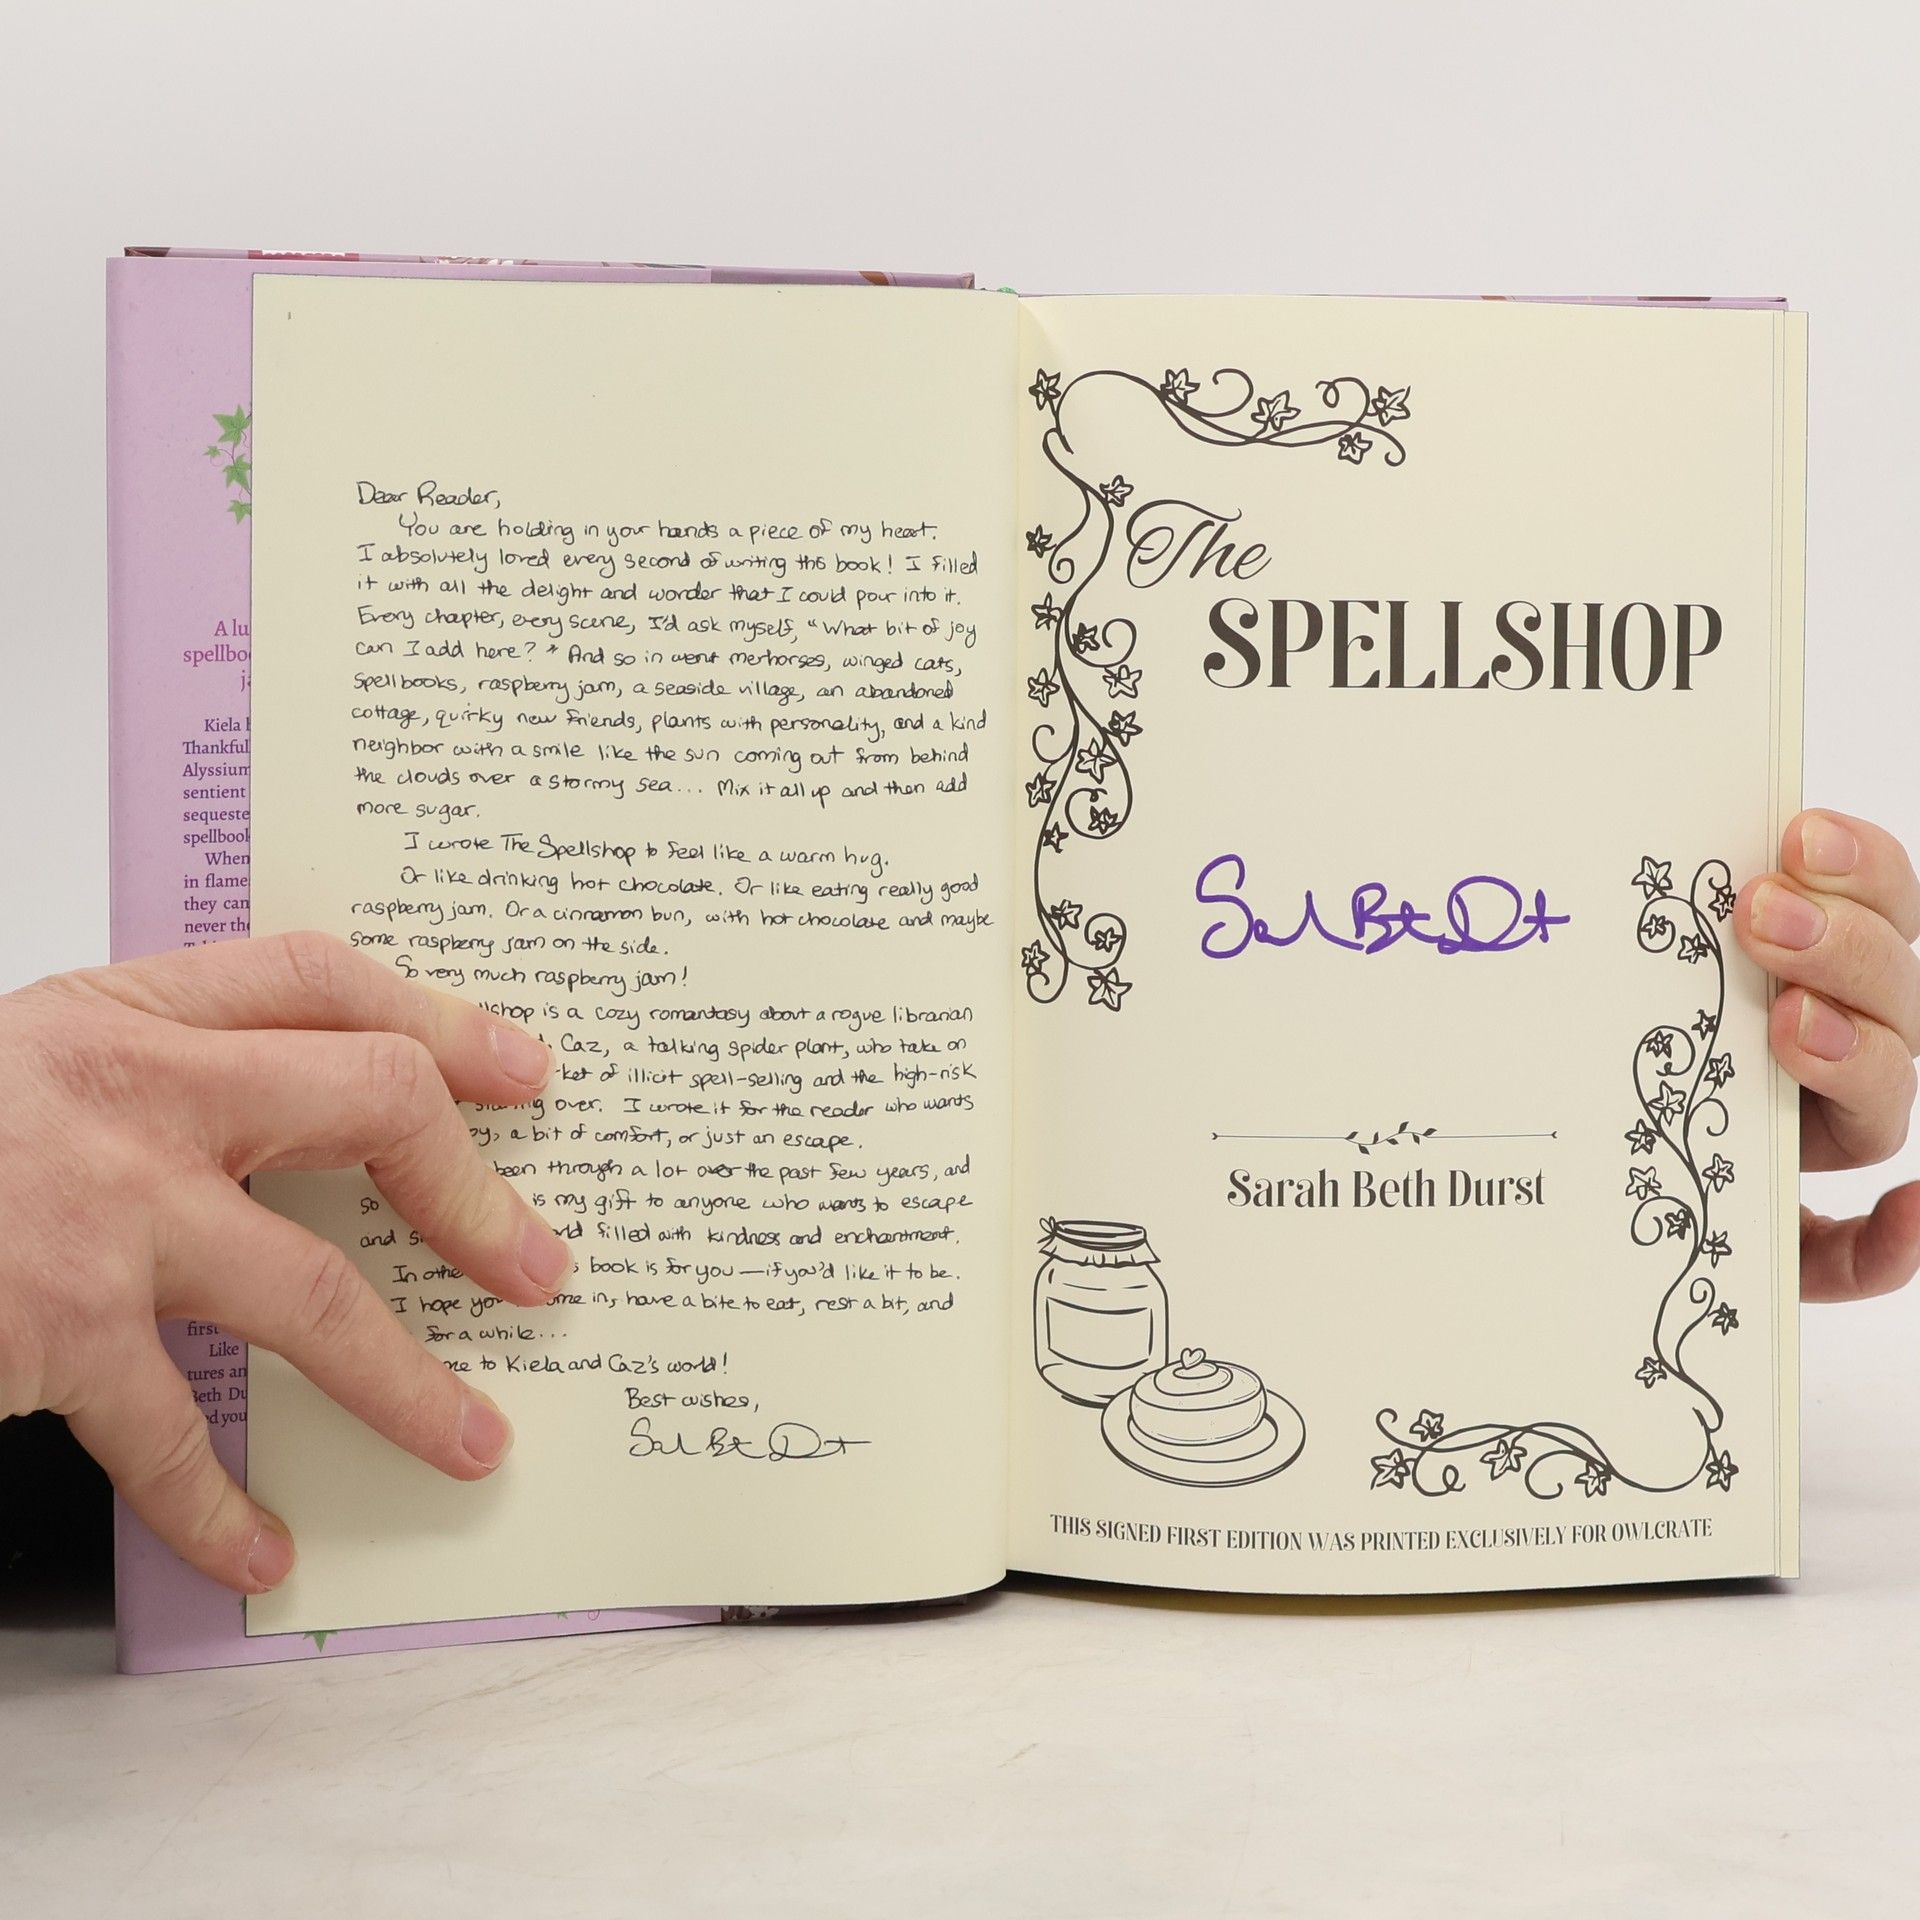 A lu
spellbo
j
Kiela h
Thankful
Alyssium
sentient
sequeste
spellbook
When
in flame
they can
never the
first
Like
tures an
Beth Du
ed you
Dear Reader,
You are holding in your hands a piece of my heart.
I absolutely loved every second of writing this book! I filled
it with all the delight and wonder that I could pour into it.
Every chapter, every scene, I'd ask myself, "What bit of joy
can I add here?" And so in went merhorses, winged cats,
spellbooks, raspberry jam, a seaside village, an abandoned
cottage, quirky new friends, plants with personality, and a kind
neighbor with a smile like the sun coming out from behind
the clouds over a stormy sea... Mix it all up and then add
more sugar.
I wrote The Spellshop to feel like a warm hug.
Or like drinking hot chocolate. Or like eating really good
raspberry jam. Or a cinnamon bun, with hot chocolate and maybe
some raspberry jam on the side.
So very much raspberry jam!
llshop is a cozy romantasy about a rogue librarian
Caz, a talking spider plant, who take on
ket of illicit spell-selling and the high-risk
over. I wrote it for the reader who wants
oy, a bit of comfort, or just an escape.
been through a lot over the past few years, and
so is my gift to anyone who wants to escape
and filled with kindness and enchantment.
In othe book is for you—if you'd like it to be.
I hope you ome in, have a bite to eat, rest a bit, and
for a while...
me to Kiela and Caz's world!
Best wishes,
The
SPELLSHOP
Sarah Beth Durst
THIS SIGNED FIRST EDITION WAS PRINTED EXCLUSIVELY FOR OWLCRATE